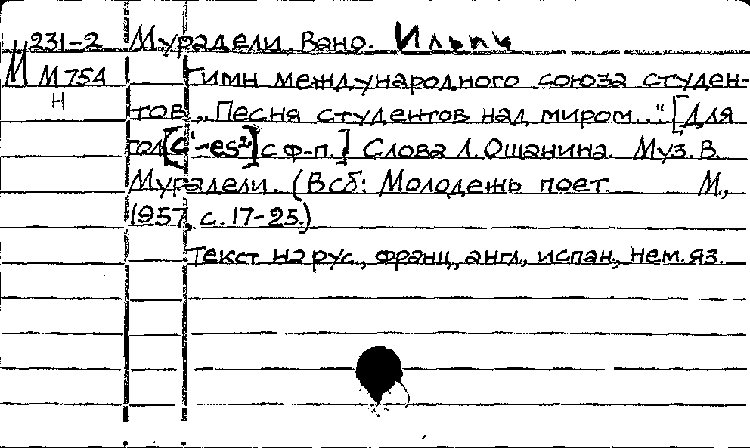 231-2 Мурадели Вано. Ильич
М М75А Гимн международного союза студен-
Н тов „Песня студентов над миром.." [Для
гол. [c¹-es²] с ф-п.] Слова Л. Ошанина. Муз. В.
Мурадели. (В сб: Молодежь поет М.,
1957, с. 17-25.)
Текст на рус., франц., англ., испан., нем. яз.